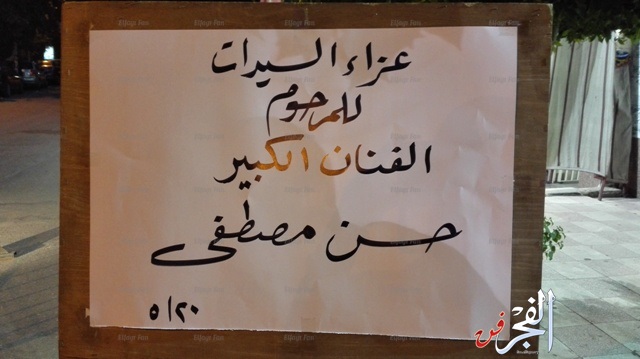 عزاء السيدات
للمرحوم
الفنان الكبير
حسن مصطفى
٥/٢٠
الفجر فن